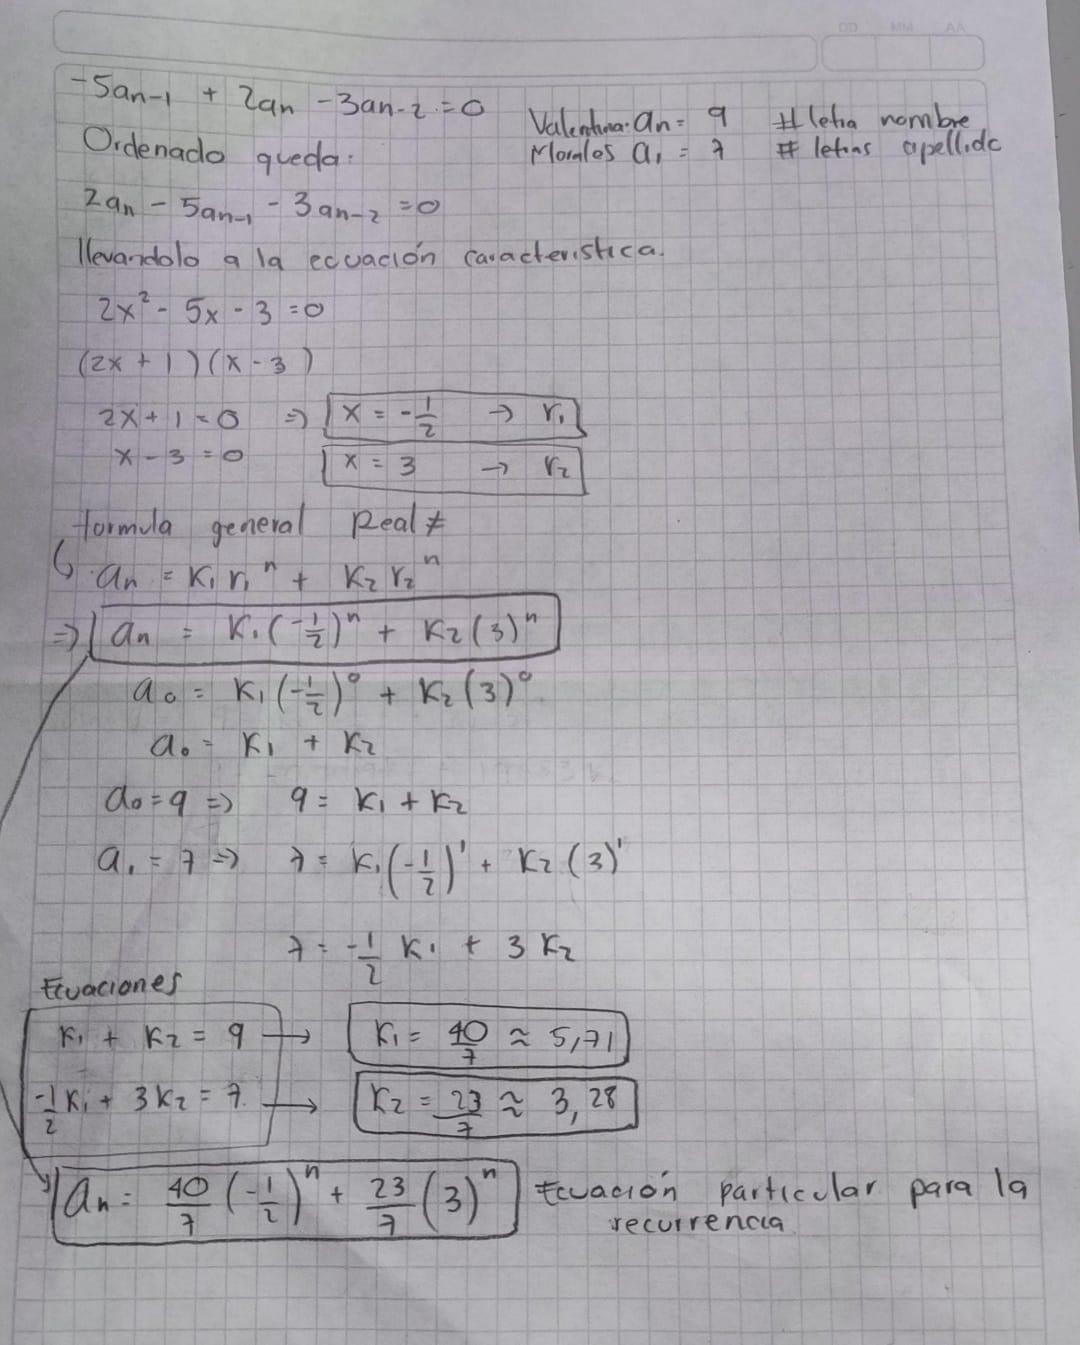 DD MM AA
-5an-1 + 2an - 3an-2 = 0
Valentina: an = 9 # letra nombre
Morales a1 = 7 # letras apellido
Ordenado queda:
2an - 5an-1 - 3an-2 = 0
llevandolo a la ecuación caracteristica.
2x² - 5x - 3 = 0
(2x + 1)(x - 3)
2x + 1 = 0 => x = -1/2 → r1
x - 3 = 0 x = 3 → r2
formula general Real ≠
an = K1 r1^n + K2 r2^n
=> an = K1(-1/2)^n + K2(3)^n
a0 = K1(-1/2)^0 + K2(3)^0
a0 = K1 + K2
a0 = 9 => 9 = K1 + K2
a1 = 7 => 7 = K1(-1/2)^1 + K2(3)^1
7 = -1/2 K1 + 3 K2
Ecuaciones
K1 + K2 = 9 → K1 = 40/7 ≈ 5,71
-1/2 K1 + 3K2 = 7. → K2 = 23/7 ≈ 3,28
an = 40/7 (-1/2)^n + 23/7 (3)^n Ecuación particular para la
recurrencia